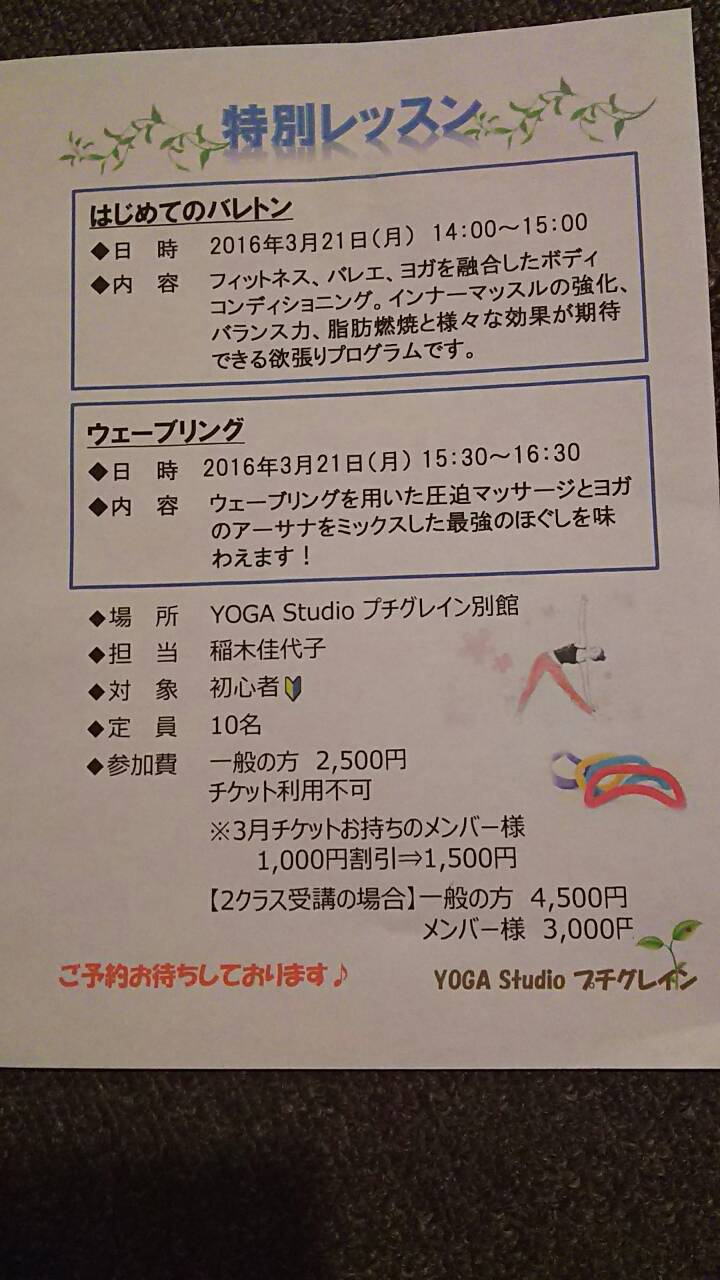 特別レッスン
はじめてのバレトン
◆日 時 2016年3月21日(月) 14:00～15:00
◆内 容 フィットネス、バレエ、ヨガを融合したボディ
コンディショニング。インナーマッスルの強化、
バランス力、脂肪燃焼と様々な効果が期待
できる欲張りプログラムです。
ウェーブリング
◆日 時 2016年3月21日(月) 15:30～16:30
◆内 容 ウェーブリングを用いた圧迫マッサージとヨガ
のアーサナをミックスした最強のほぐしを味
わえます！
◆場 所 YOGA Studio プチグレイン別館
◆担 当 稲木佳代子
◆対 象 初心者🔰
◆定 員 10名
◆参加費 一般の方 2,500円
チケット利用不可
※3月チケットお持ちのメンバー様
1,000円割引⇒1,500円
【2クラス受講の場合】一般の方 4,500円
メンバー様 3,000円
ご予約お待ちしております♪
YOGA Studio プチグレイン